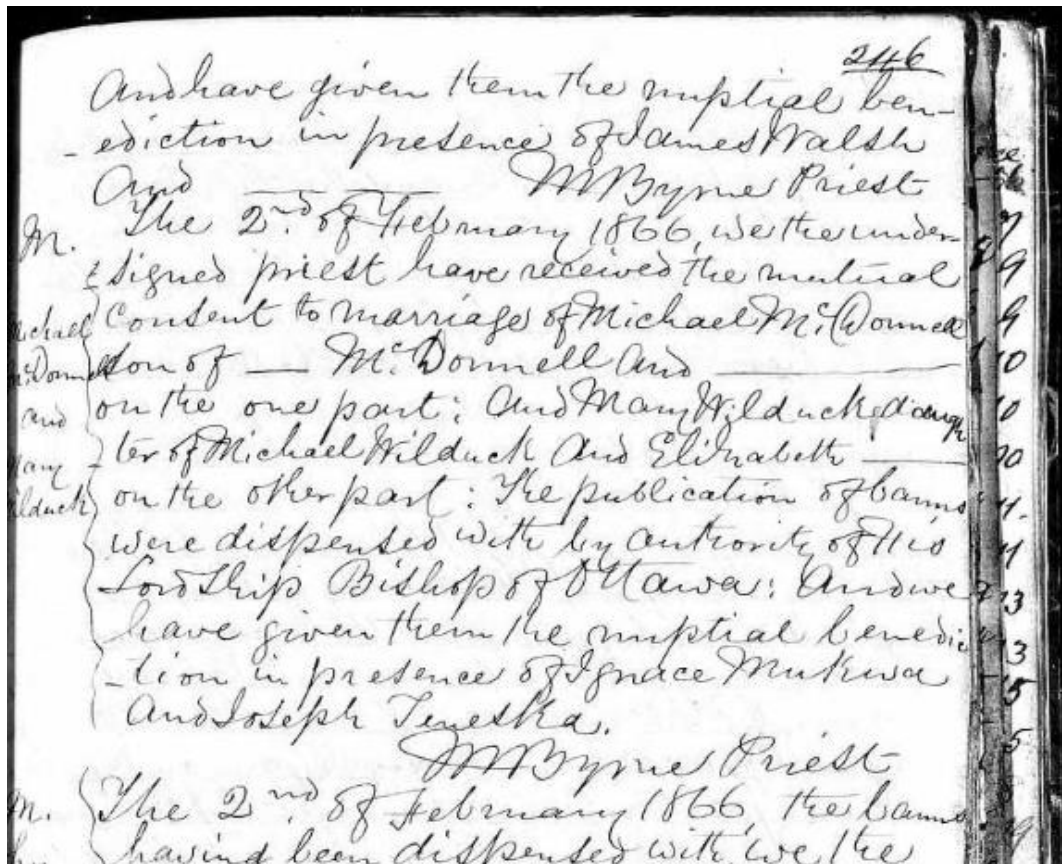 246
And have given them the nuptial ben-
-ediction in presence of James Walsh
And M Byrne Priest
M. The 2nd. of February 1866, we the under-
-signed priest have received the mutual
Consent to marriage of Michael Mc. Donnell
Son of — Mc. Donnell And —
on the one part: And Mary Wilduck daugh
-ter of Michael Wilduck And Elizabeth —
on the other part: The publication of banns
were dispensed with by authority of His
Lordship Bishop of Ottawa: And we
have given them the nuptial benedic
-tion in presence of Ignace Mukwa
And Joseph Teneska.
M Byrne Priest
M. The 2nd. of February 1866, the banns
having been dispensed with, we, the
ichael
Mc. Donnell
and
Mary
ilduck